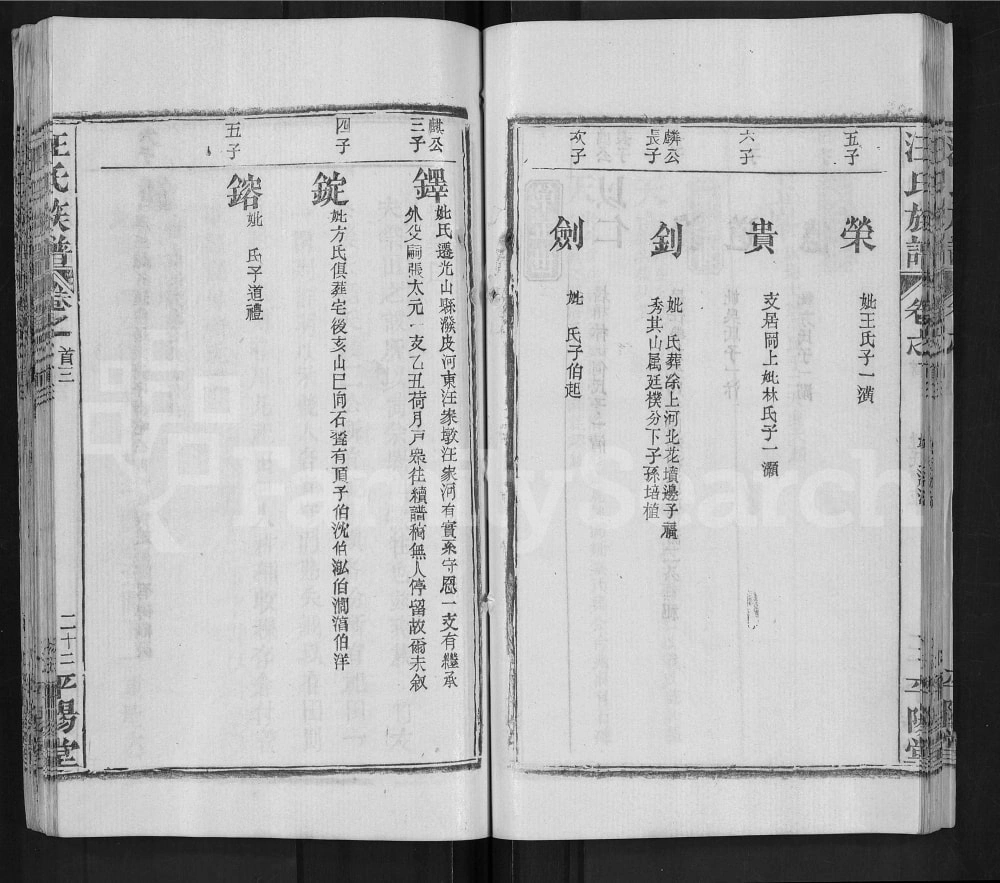 五子
榮
妣王氏子一潢
六子
貴
支居岡上妣林氏子一灝
麟公
長子
釗
妣 氏葬涂上河北花墳邊子
秀其山属廷樸分下子孫培植
次子
劍
妣 氏子伯起
汪氏族譜
卷之首三
二十三
平陽堂
麟公
三子
鐸
妣氏遷光山縣潑皮河東汪家墩汪家河有實系守恩一支有繼承
外殳嗣張太元一支乙丑荷月戸衆往續譜稿無人停留故爾未叙
四子
錠
妣方氏俱葬宅後亥山巳向石嵳有頂子伯沈伯泓伯澗伯洋
五子
鎔
妣 氏子道禮
FamilySearch